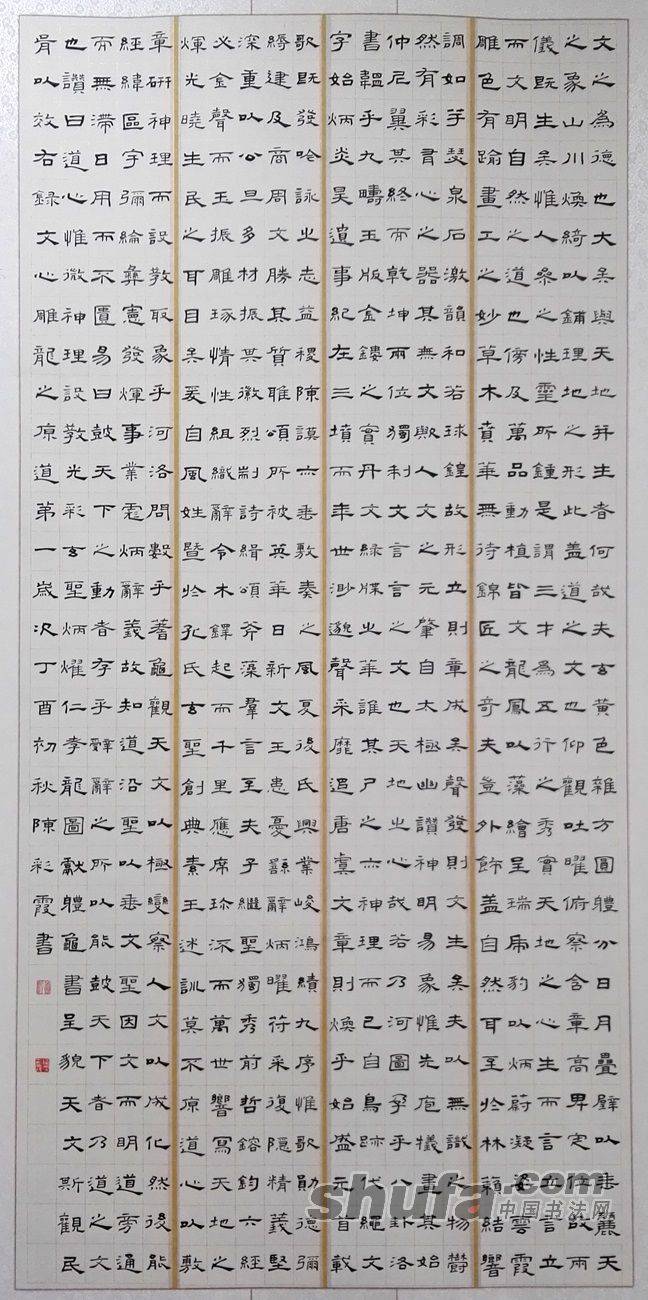 文之為德也大矣與天地并生者何哉夫玄黃色雜方圓體分日月疊璧以垂麗天
之象山川煥綺以鋪理地之形此蓋道之文也仰觀吐曜俯察含章高卑定位故兩
儀既生矣惟人參之性靈所鍾是謂三才為五行之秀實天地之心生而言立言立
而文明自然之道也傍及萬品動植皆文龍鳳以藻繪呈瑞虎豹以炳蔚凝姿雲霞
雕色有踰畫工之妙草木賁華無待錦匠之奇夫豈外飾蓋自然耳至於林籟結響
調如竽瑟泉石激韻和若球鍠故形立則章成矣聲發則文生矣夫以無識之物鬱
然有彩有心之器其無文歟人文之元肇自太極幽讚神明易象惟先庖犧畫其始
仲尼翼其終而乾坤兩位獨制文言言之文也天地之心哉若乃河圖孕乎八卦洛
書韞乎九疇玉版金鏤之實丹文綠牒之華誰其尸之亦神理而已自鳥跡代繩文
字始炳炎昊遺事紀在三墳而年世渺邈聲采靡追唐虞文章則煥乎始盛元首載
歌既發吟詠之志益稷陳謨亦垂敷奏之風夏後氏興業峻鴻績九序惟歌勛德彌
縟逮及商周文勝其質雅頌所被英華日新文王患憂繇辭炳曜符采復隱精義堅
深重以公旦多材振其徽烈制詩緝頌斧藻羣言至夫子繼聖獨秀前哲鎔鈞六經
必金聲而玉振雕琢情性組織辭令木鐸起而千里應席珍流而萬世響寫天地之
煇光曉生民之耳目矣爰自風姓暨於孔氏玄聖創典素王述訓莫不原道心以敷
章研神理而設教取象乎河洛問數乎蓍龜觀天文以極變察人文以成化然後能
經緯區宇彌綸彝憲發煇事業彪炳辭義故知道沿聖以垂文聖因文而明道旁通
而無滯日用而不匱易曰鼓天下之動者存乎辭辭之所以能鼓天下者乃道之文
也讚曰道心惟微神理設教光彩玄聖炳燿仁孝龍圖獻體龜書呈貌天文斯觀民
胥以效右錄文心雕龍之原道第一歲次丁酉初秋陳彩霞書
shufa.com
中国书法网